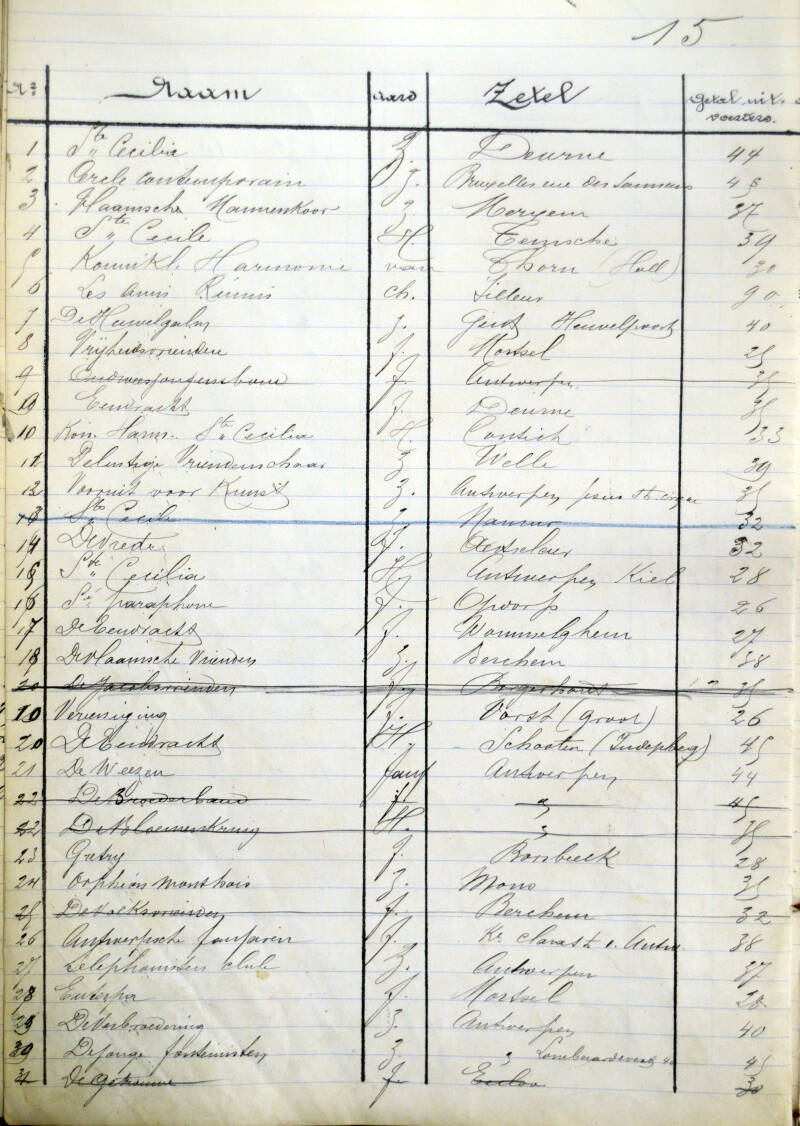 15
No Naam aard Zetel Getal uit-
voerders.
1 Ste Cecilia Z. Deurne 44
2 Cercle contemporain Z. Bruxelles rue des 45
3 Vlaamsche Mannenkoor Z Merxem 37
4 Ste Cecile H. Temsche 39
5 Koninkl. Harmonie van Thorn (Holl) 30
6 Les Amis Réunis ch. Tilleur 90
7 De Heuvelgalm Z. Gent Heuvelpoort 40
8 Vrijheidsvrienden f. Mortsel 25
9 f. Antwerpen 35
10 Eendracht f. Deurne 35
10 Kon. Harm. Ste Cecilia H. Contich 33
12 De lustige Vriendenschaar Z Welle 39
12 Vooruit voor Kunst Z. Antwerpen 35
13 Ste Cecile Z. Namur 32
14 De Vrede f. Aertselaer 32
15 Ste Cecilia H. Antwerpen Kiel 28
16 f. Opdorp 26
17 De Eendracht f. Wommelghem 27
18 De Vlaamsche Vrienden Z. Berchem 38
20 De Jacobsvrienden f. Borgerhout 35
10 Vereeniging f. Vorst (groot) 26
20 De Eendracht H. Schooten 45
21 De Weezen fanf Antwerpen 44
22 De Broederband f. " 45
22 De Bloemenkring H. " 35
23 Gretry f. Borsbeeck 28
24 Orphéon Montois Z. Mons 35
25 De Volksvrienden f. Berchem 32
26 Antwerpsche fanfaren f. Antw. 38
27 Telephonisten club Z. Antwerpen 37
28 Euterpe f. Mortsel 28
29 De Verbroedering Z. Antwerpen 40
30 De jonge Z " 45
31 De Getrouwe f. Eecloo 30